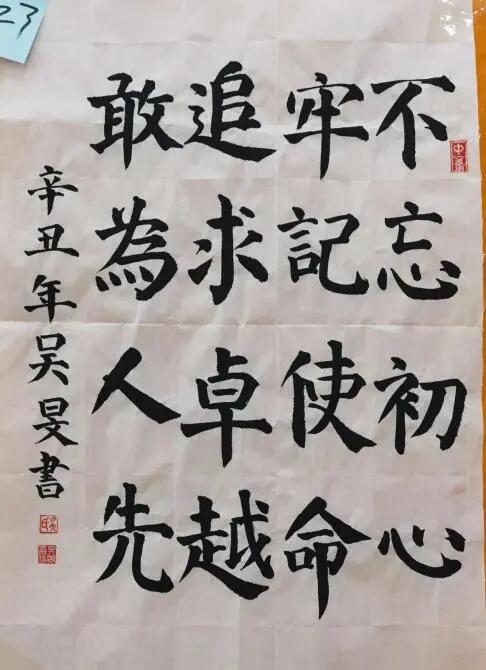 不忘初心
牢記使命
追求卓越
敢為人先
辛丑年吴旻書
23